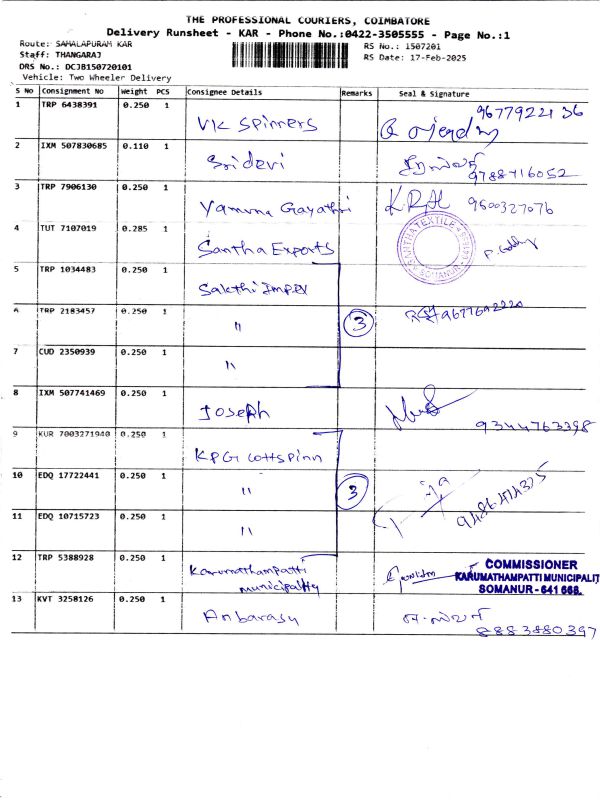 THE PROFESSIONAL COURIERS, COIMBATORE
Delivery Runsheet - KAR - Phone No.:0422-3505555 - Page No.:1
Route: SAMALAPURAM KAR
RS No.: 1507201
Staff: THANGARAJ
RS Date: 17-Feb-2025
DRS No.: DCJB150720101
Vehicle: Two Wheeler Delivery
S No Consignment No Weight PCS Consignee Details Remarks Seal & Signature
1 TRP 6438391 0.250 1 VK Spinners 9677922136
2 IXM 507830685 0.110 1 Sri devi 9788716052
3 TRP 7906130 0.250 1 Yamuna Gayathri 9600327076
4 TUT 7107019 0.285 1 Santha Exports
SOMANUR
5 TRP 1034483 0.250 1 Sakthi Impex
6 TRP 2183457 0.250 1 " 3
7 CUD 2350939 0.250 1 "
8 IXM 507741469 0.250 1 Joseph 9344763398
9 KUR 7003271940 0.250 1 KPG Cottspinn
10 EDQ 17722441 0.250 1 " 3
11 EDQ 10715723 0.250 1 "
12 TRP 5388928 0.250 1 Karumathampatti municipality
COMMISSIONER
KARUMATHAMPATTI MUNICIPALIT
SOMANUR - 641 668.
13 KVT 3258126 0.250 1 Anbarasu 8883880397